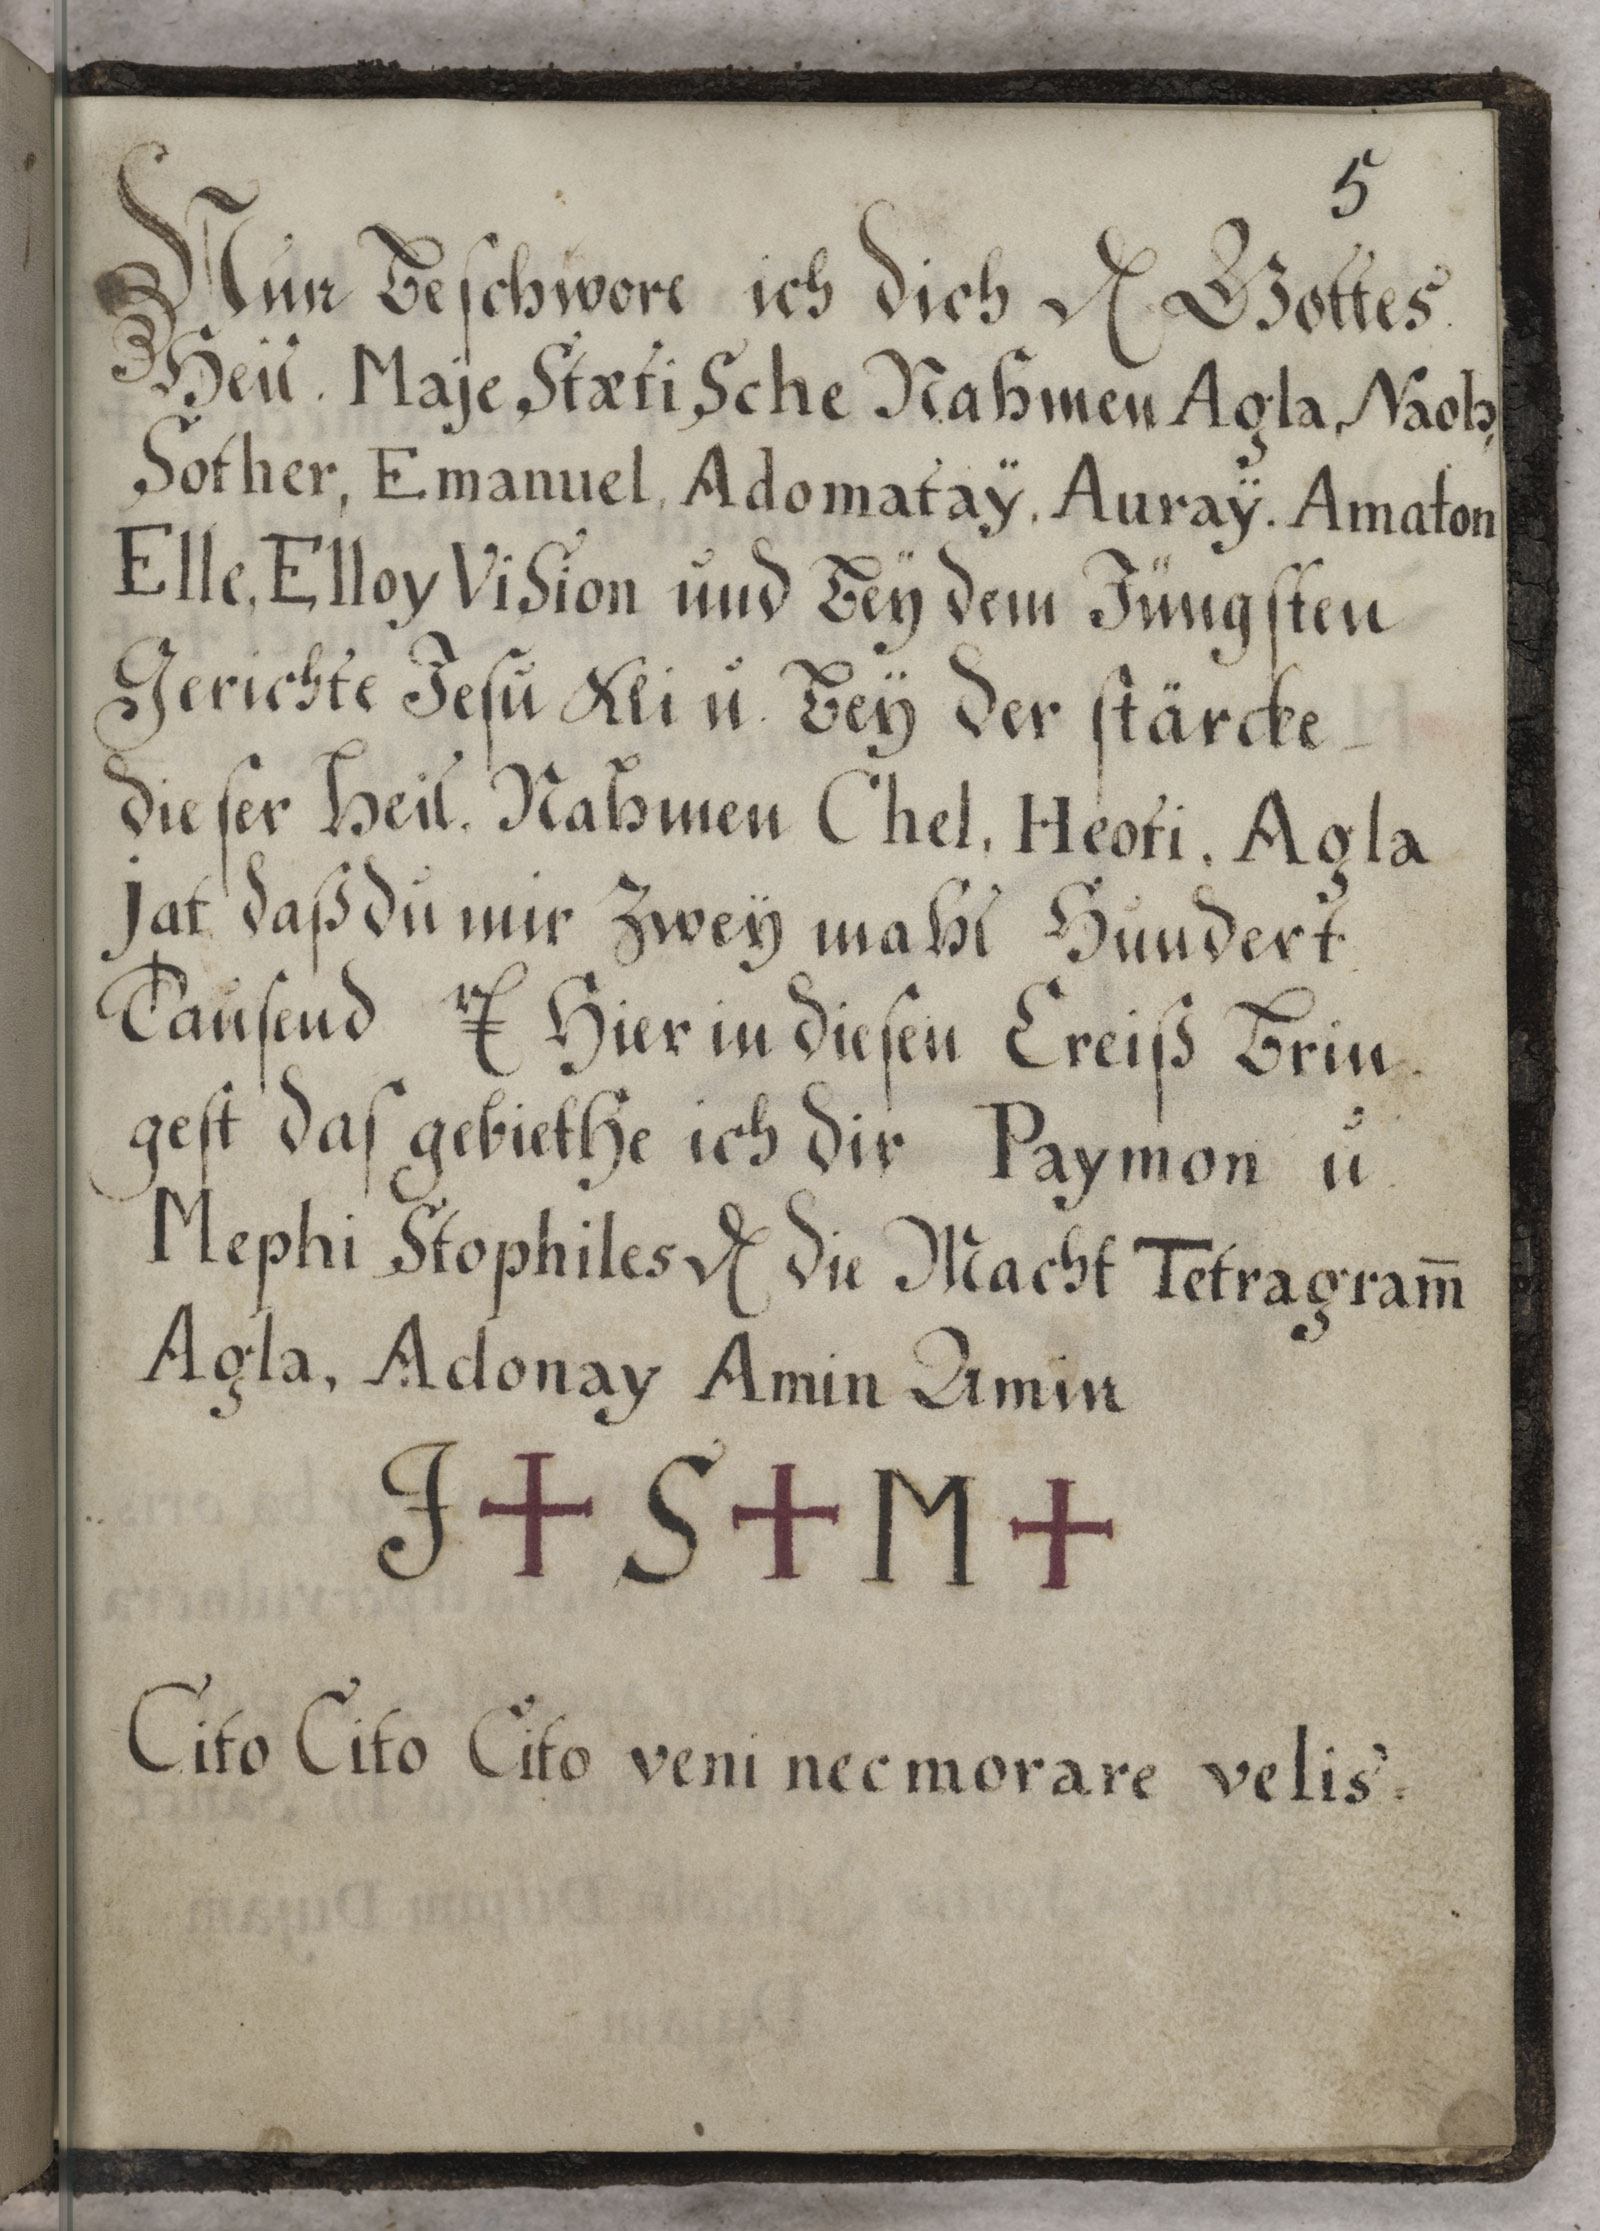 5
Nun Beschwore ich dich Gottes
Heil. MajeStætiSche Nahmen Agla, Naoh,
Sother, Emanuel, Adomataÿ, Auraÿ. Amaton
Elle, Elloy ViSion und Beÿ dem Jüngsten
Gerichte Jesu Xli u. Beÿ der stärcke
dieser Heil. Nahmen Chel, Heoti, Agla
jat daß du mir Zweÿ mahl Hundert
Tausend Hier in diesen Creiß Brin
gest das gebiethe ich dir Paymon u
Mephi Stophiles die Macht Tetragram̅
Agla, Adonay Amin Amin
J + S + M +
Cito Cito Cito veni nec morare velis.